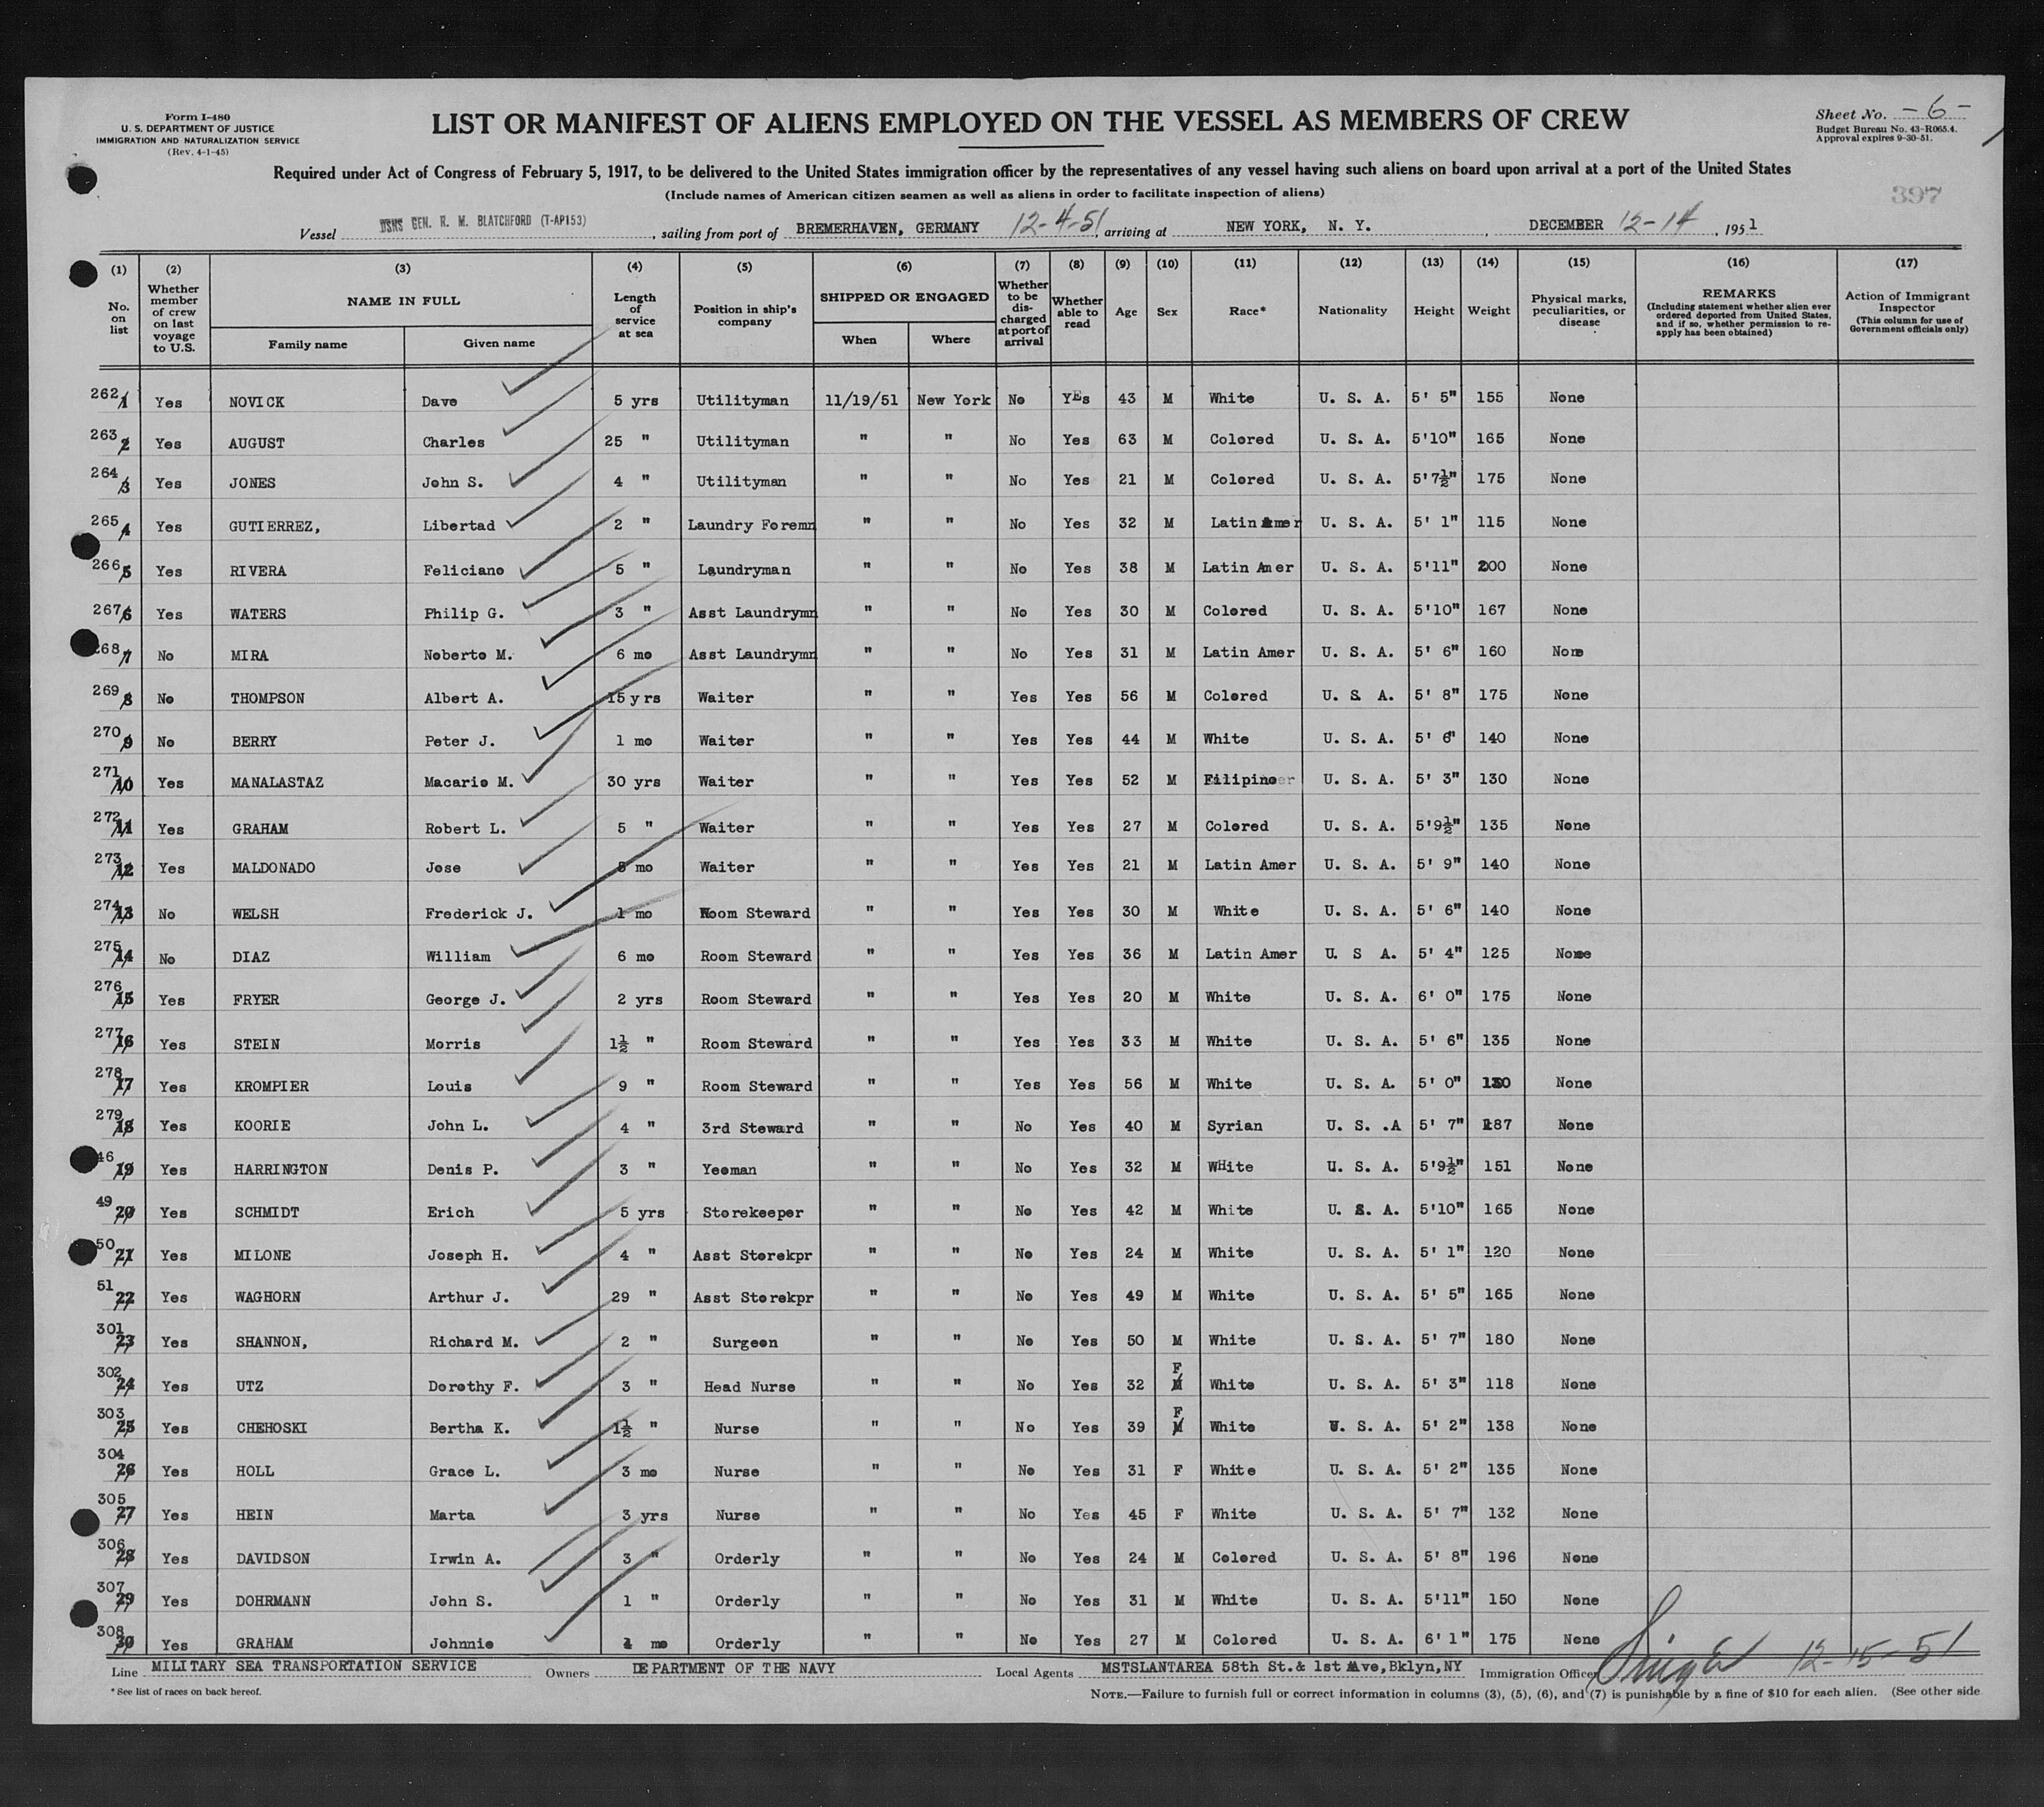 Form I-480
U. S. DEPARTMENT OF JUSTICE
IMMIGRATION AND NATURALIZATION SERVICE
(Rev. 4-1-45)
LIST OR MANIFEST OF ALIENS EMPLOYED ON THE VESSEL AS MEMBERS OF CREW
Sheet No. -6-
Budget Bureau No. 43-R065.4.
Approval expires 9-30-51.
Required under Act of Congress of February 5, 1917, to be delivered to the United States immigration officer by the representatives of any vessel having such aliens on board upon arrival at a port of the United States
(Include names of American citizen seamen as well as aliens in order to facilitate inspection of aliens)
397
Vessel USNS GEN. R. M. BLATCHFORD (T-AP153), sailing from port of BREMERHAVEN, GERMANY 12-4-51, arriving at NEW YORK, N. Y., DECEMBER 12-14, 1951
(1) (2) (3) (4) (5) (6) (7) (8) (9) (10) (11) (12) (13) (14) (15) (16) (17)
No. on list
Whether member of crew on last voyage to U.S.
NAME IN FULL
Family name Given name
Length of service at sea
Position in ship's company
SHIPPED OR ENGAGED
When Where
Whether to be discharged at port of arrival
Whether able to read
Age
Sex
Race*
Nationality
Height
Weight
Physical marks, peculiarities, or disease
REMARKS
(Including statement whether alien ever ordered deported from United States, and if so, whether permission to re-apply has been obtained)
Action of Immigrant Inspector
(This column for use of Government officials only)
262 1 Yes NOVICK Dave 5 yrs Utilityman 11/19/51 New York No YEs 43 M White U. S. A. 5' 5" 155 None
263 2 Yes AUGUST Charles 25 " Utilityman " " No Yes 63 M Colored U. S. A. 5'10" 165 None
264 3 Yes JONES John S. 4 " Utilityman " " No Yes 21 M Colored U. S. A. 5'7½" 175 None
265 4 Yes GUTIERREZ, Libertad 2 " Laundry Foremn " " No Yes 32 M Latin Amer U. S. A. 5' 1" 115 None
266 5 Yes RIVERA Feliciano 5 " Laundryman " " No Yes 38 M Latin Amer U. S. A. 5'11" 200 None
267 6 Yes WATERS Philip G. 3 " Asst Laundrymn " " No Yes 30 M Colored U. S. A. 5'10" 167 None
268 7 No MIRA Noberto M. 6 mo Asst Laundrymn " " No Yes 31 M Latin Amer U. S. A. 5' 6" 160 None
269 8 No THOMPSON Albert A. 15 yrs Waiter " " Yes Yes 56 M Colored U. S. A. 5' 8" 175 None
270 9 No BERRY Peter J. 1 mo Waiter " " Yes Yes 44 M White U. S. A. 5' 6" 140 None
271 10 Yes MANALASTAZ Macario M. 30 yrs Waiter " " Yes Yes 52 M Filipino U. S. A. 5' 3" 130 None
272 11 Yes GRAHAM Robert L. 5 " Waiter " " Yes Yes 27 M Colored U. S. A. 5'9½" 135 None
273 12 Yes MALDONADO Jose 5 mo Waiter " " Yes Yes 21 M Latin Amer U. S. A. 5' 9" 140 None
274 13 No WELSH Frederick J. 1 mo Room Steward " " Yes Yes 30 M White U. S. A. 5' 6" 140 None
275 14 No DIAZ William 6 mo Room Steward " " Yes Yes 36 M Latin Amer U. S A. 5' 4" 125 None
276 15 Yes FRYER George J. 2 yrs Room Steward " " Yes Yes 20 M White U. S. A. 6' 0" 175 None
277 16 Yes STEIN Morris 1½ " Room Steward " " Yes Yes 33 M White U. S. A. 5' 6" 135 None
278 17 Yes KROMPIER Louis 9 " Room Steward " " Yes Yes 56 M White U. S. A. 5' 0" None
279 18 Yes KOORIE John L. 4 " 3rd Steward " " No Yes 40 M Syrian U. S. .A 5' 7" 187 None
46 19 Yes HARRINGTON Denis P. 3 " Yeoman " " No Yes 32 M WHite U. S. A. 5'9½" 151 None
49 20 Yes SCHMIDT Erich 5 yrs Storekeeper " " No Yes 42 M White U. S. A. 5'10" 165 None
50 21 Yes MILONE Joseph H. 4 " Asst Storekpr " " No Yes 24 M White U. S. A. 5' 1" 120 None
51 22 Yes WAGHORN Arthur J. 29 " Asst Storekpr " " No Yes 49 M White U. S. A. 5' 5" 165 None
301 23 Yes SHANNON, Richard M. 2 " Surgeon " " No Yes 50 M White U. S. A. 5' 7" 180 None
302 24 Yes UTZ Dorothy F. 3 " Head Nurse " " No Yes 32 F M White U. S. A. 5' 3" 118 None
303 25 Yes CHEHOSKI Bertha K. 1½ " Nurse " " No Yes 39 F M White U. S. A. 5' 2" 138 None
304 26 Yes HOLL Grace L. 3 mo Nurse " " No Yes 31 F White U. S. A. 5' 2" 135 None
305 27 Yes HEIN Marta 3 yrs Nurse " " No Yes 45 F White U. S. A. 5' 7" 132 None
306 28 Yes DAVIDSON Irwin A. 3 " Orderly " " No Yes 24 M Colored U. S. A. 5' 8" 196 None
307 29 Yes DOHRMANN John S. 1 " Orderly " " No Yes 31 M White U. S. A. 5'11" 150 None
308 30 Yes GRAHAM Johnnie 4 mo Orderly " " No Yes 27 M Colored U. S. A. 6' 1" 175 None
Line MILITARY SEA TRANSPORTATION SERVICE Owners DEPARTMENT OF THE NAVY Local Agents MSTSLANTAREA 58th St.& 1st Ave,Bklyn,NY Immigration Officer 12-15-51
*See list of races on back hereof.
NOTE.—Failure to furnish full or correct information in columns (3), (5), (6), and (7) is punishable by a fine of $10 for each alien. (See other side